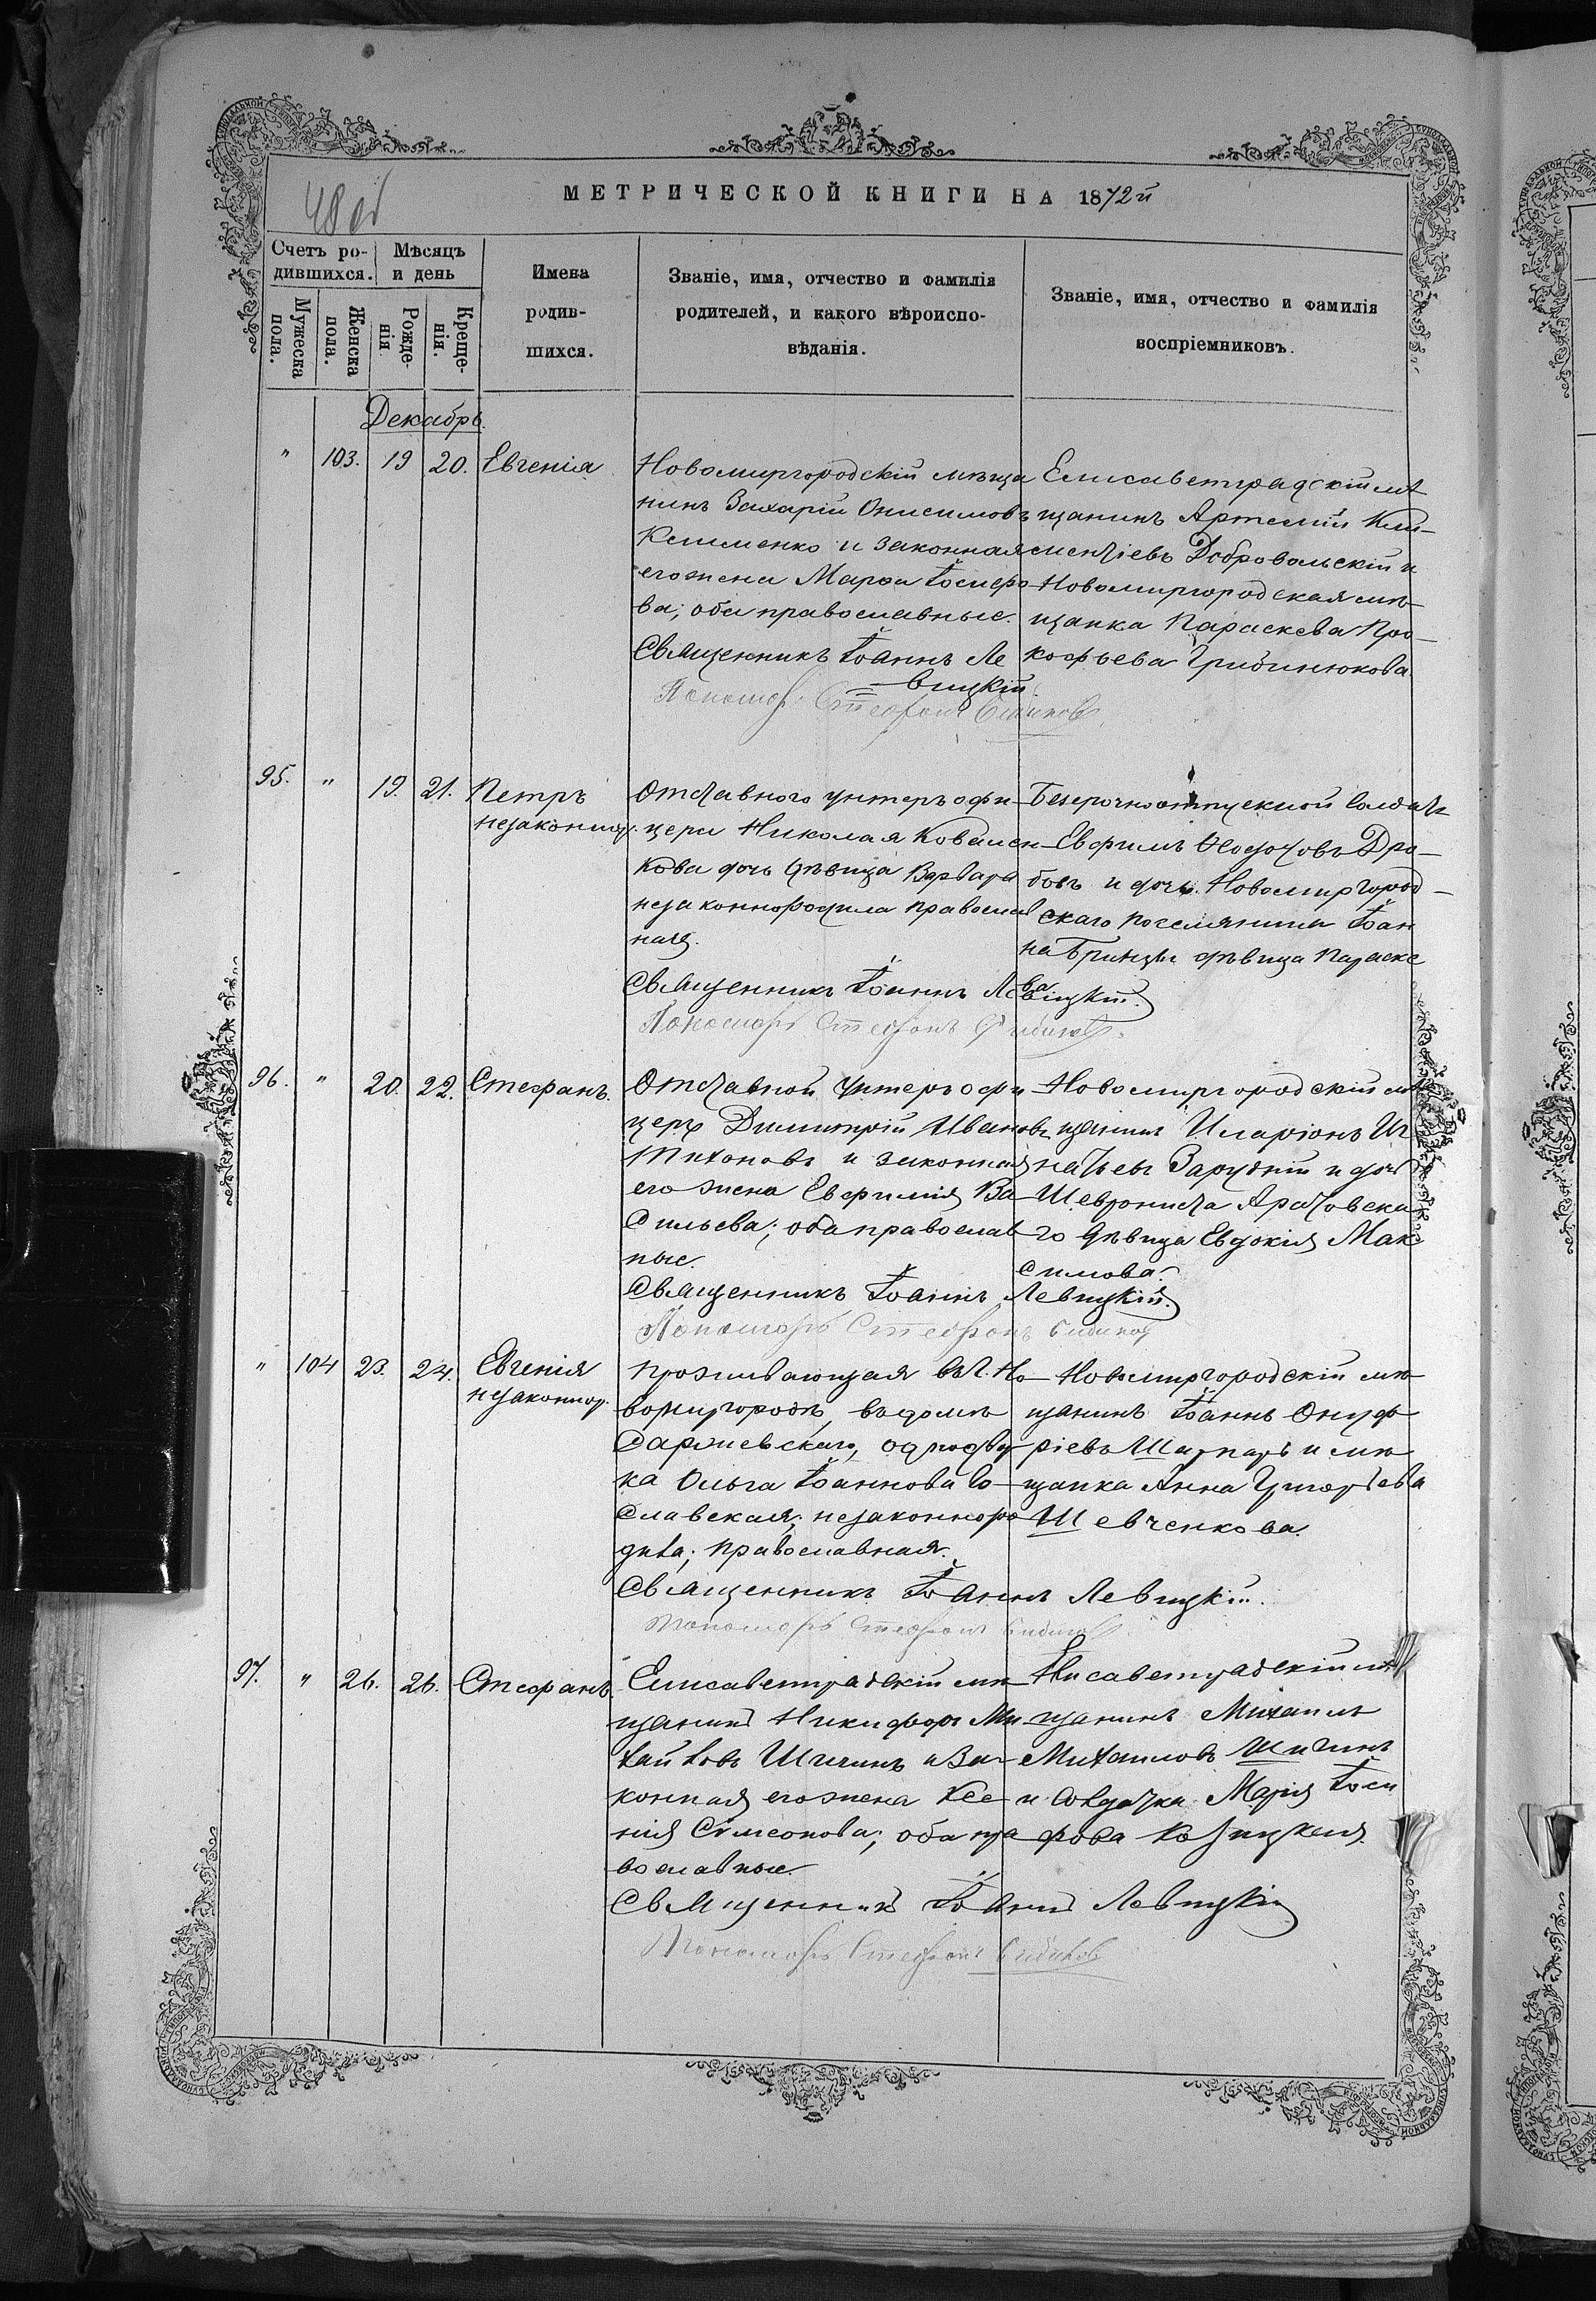 48 об
МЕТРИЧЕСКОЙ КНИГИ НА 1872й
Счетъ ро-
дившихся.
Мужеска
пола.
Женска
пола.
Мѣсяцъ
и день
Рожде-
нія
Креще-
нія.
Имена
родив-
шихся.
Званіе, имя, отчество и фамилія
родителей, и какого вѣроиспо-
вѣданія.
Званіе, имя, отчество и фамилія
воспріемниковъ.
Декабрь.
" 103. 19 20. Евгенія
Новомиргородскій мѣща
нинъ Захарій Онисимовъ
Клименко и законная
его жена Марфа Іосифо
ва; оба православные.
Священникъ Іоаннъ Ле
вицкій.
Пономарь Стефанъ
Елисаветградскій мѣ
щанинъ Артемій Кли-
ментіевъ Добровольскій и
Новомиргородская мѣ-
щанка Параскева Про-
кофьева
95. " 19. 21. Петръ
незаконнор.
Отставного унтеръ офи-
цера Николая Ковален-
кова дочь дѣвица Варвара
незаконнородила православ
ная.
Священникъ Іоаннъ Левицкій.
Пономарь Стефанъ
Безсрочноотпускной солдатъ
Евфимъ Ѳедотовъ Дро-
бовъ и дочь Новомиргород-
скаго поселянина Іоан
на дѣвица Параске
ва
96. " 20. 22. Стефанъ.
Отставной унтеръ офи
церъ Димитрій Ивановъ
Тихоновъ и законная
его жена Евфимія Ва-
сильева; оба православ
ные.
Священникъ Іоаннъ Левицкій.
Пономарь Стефанъ
Новомиргородскій мѣ
щанинъ Иларіонъ Иг
натьевъ Заруднiй и дочь
дѣвица Евдокія Мак
симова.
" 104 23. 24. Евгенія
незаконнор.
Проживающая въ г. Но-
вомиргородѣ, въ домѣ
однодвор
ка Ольга Іоаннова
славская, незаконноро
дила; православная.
Священникъ Іоаннъ Левицкій.
Пономарь Стефанъ
Новомиргородскій мѣ
щанинъ Іоаннъ Онуф
ріевъ и мѣ
щанка Анна Григорьева
Шевченкова.
97. " 26. 26. Стефанъ.
Елисаветградскій мѣ
щанинъ Никифоръ Ми
хайловъ Шигинъ и За-
конная его жена Ксе-
нія Симеонова; оба пра
вославные.
Священникъ Іоаннъ Левицкій
Пономарь Стефанъ
мѣ
щанинъ Михаилъ
Михаиловъ Шигинъ
и солдатка Марія Іоси
фова Козицкая.